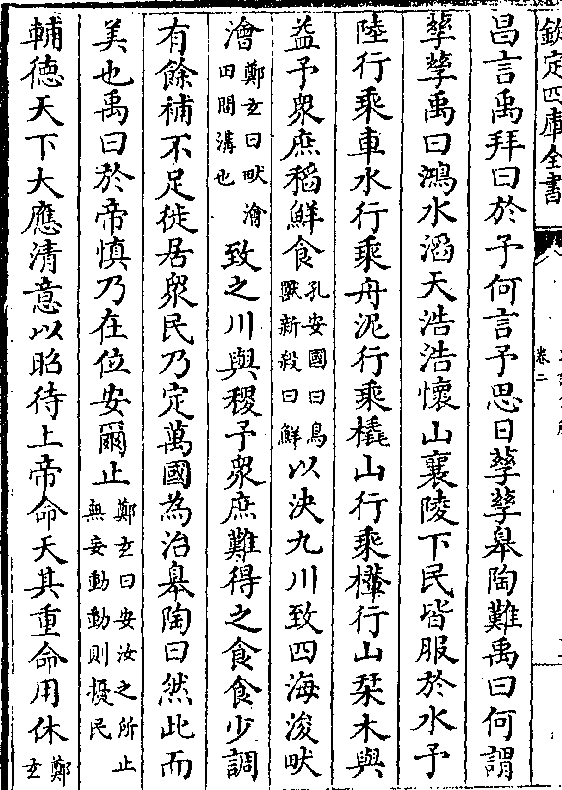 欽定四庫全書
卷二
昌言禹拜曰於予何言予思日孳孳皋陶難禹曰何謂
孳孳禹曰鴻水滔天浩浩懷山襄陵下民皆服於水予
陸行乘車水行乘舟泥行乘橇山行乘檋行山栞木與
益予衆庶稻鮮食孔安國曰鳥獸新殺曰鮮以決九川致四海浚畎
澮鄭玄曰畎澮田間溝也致之川與稷予衆庶難得之食食少調
有餘補不足徙居衆民乃定萬國為治皋陶曰然此而
美也禹曰於帝慎乃在位安爾止鄭玄曰安汝之所止無妄動動則擾民
輔德天下大應清意以昭待上帝命天其重命用休鄭玄